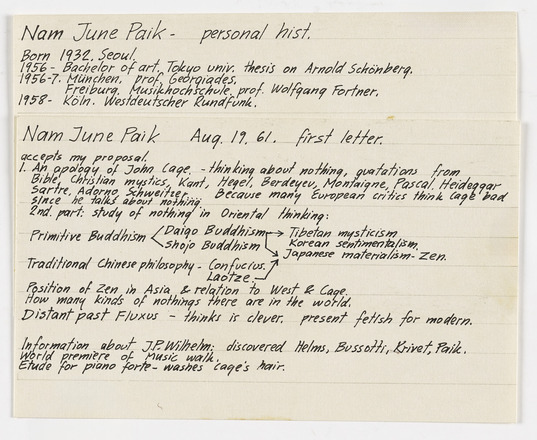 Nam June Paik - personal hist.
Born 1932. Seoul.
1956 - Bachelor of art, Tokyo univ. thesis on Arnold Schönberg.
1956-7. München, prof. Georgiades.
Freiburg. Musikhochschule, prof. Wolfgang Fortner.
1958- Köln. Westdeutscher Rundfunk.
Nam June Paik Aug. 19. 61. first letter.
accepts my proposal.
1. An apology of John Cage. - thinking about nothing, quotations from
Bible, Christian mystics, Kant, Hegel, Berdeyev, Montaigne, Pascal, Heideggar
Sartre, Adorno, Schweitzer. Because many European critics think Cage bad
since he talks about nothing.
2nd. part: study of nothing in Oriental thinking:
Primitive Buddhism Daijo Buddhism Tibetan mysticism
Shojo Buddhism Korean sentimentalism.
Japanese materialism - Zen.
Traditional Chinese philosophy - Confucius.
Laotze.
Position of Zen in Asia & relation to West & Cage.
How many kinds of nothings there are in the world.
Distant past Fluxus - thinks is clever. present fetish for modern.
Information about J.P. Wilhelm: discovered Helms, Bussotti, Krivet, Paik.
World premiere of Music walk.
Etude for piano forte - washes Cage's hair.